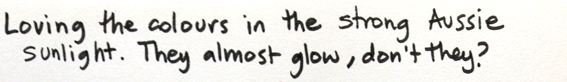 Loving the colours in the strong Aussie
sunlight. They almost glow, don't they?